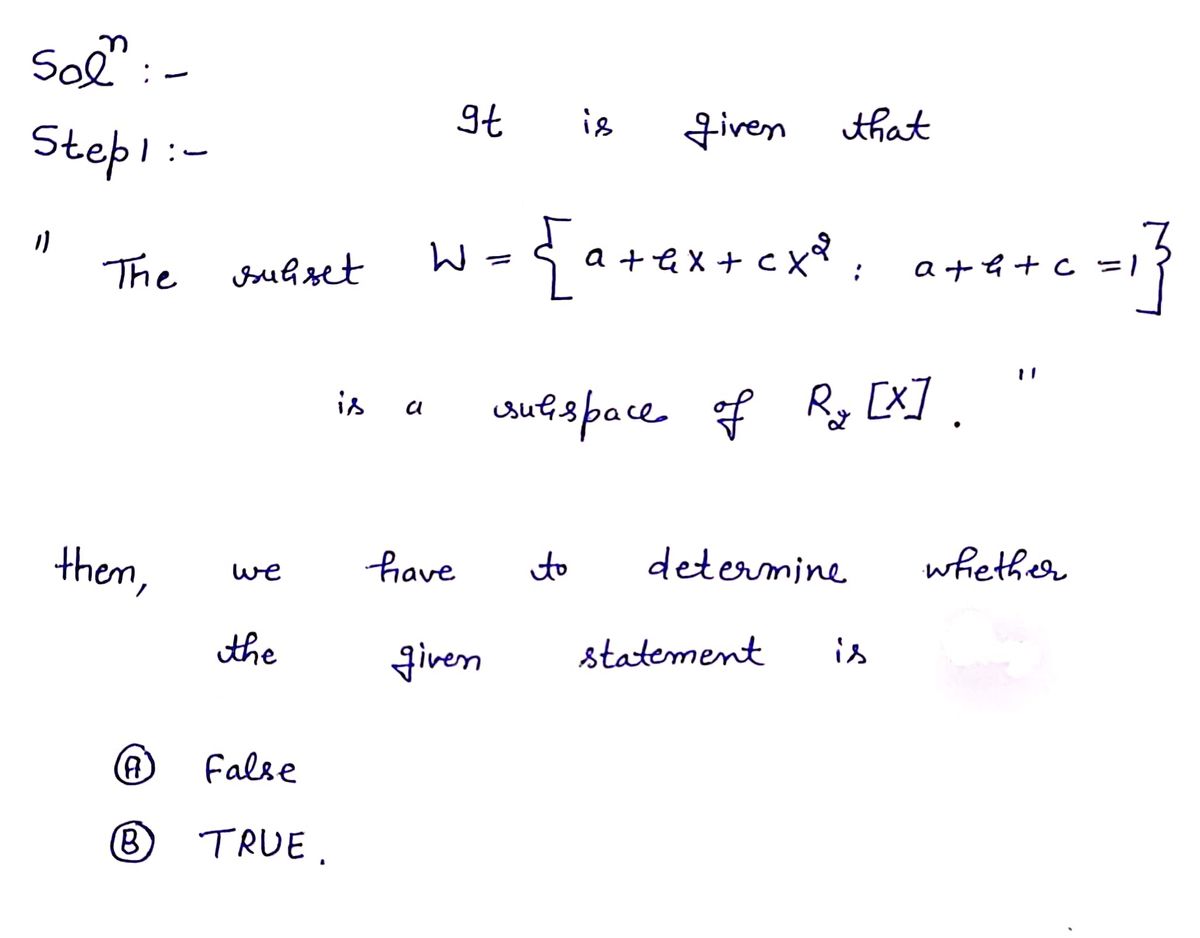 Solⁿ :-
Step 1 :- It is given that
" The subset W = { a + bx + cx² : a + b + c = 1 }
is a subspace of R₂ [X] . "
then, we have to determine whether
the given statement is
Ⓐ False
Ⓑ TRUE .